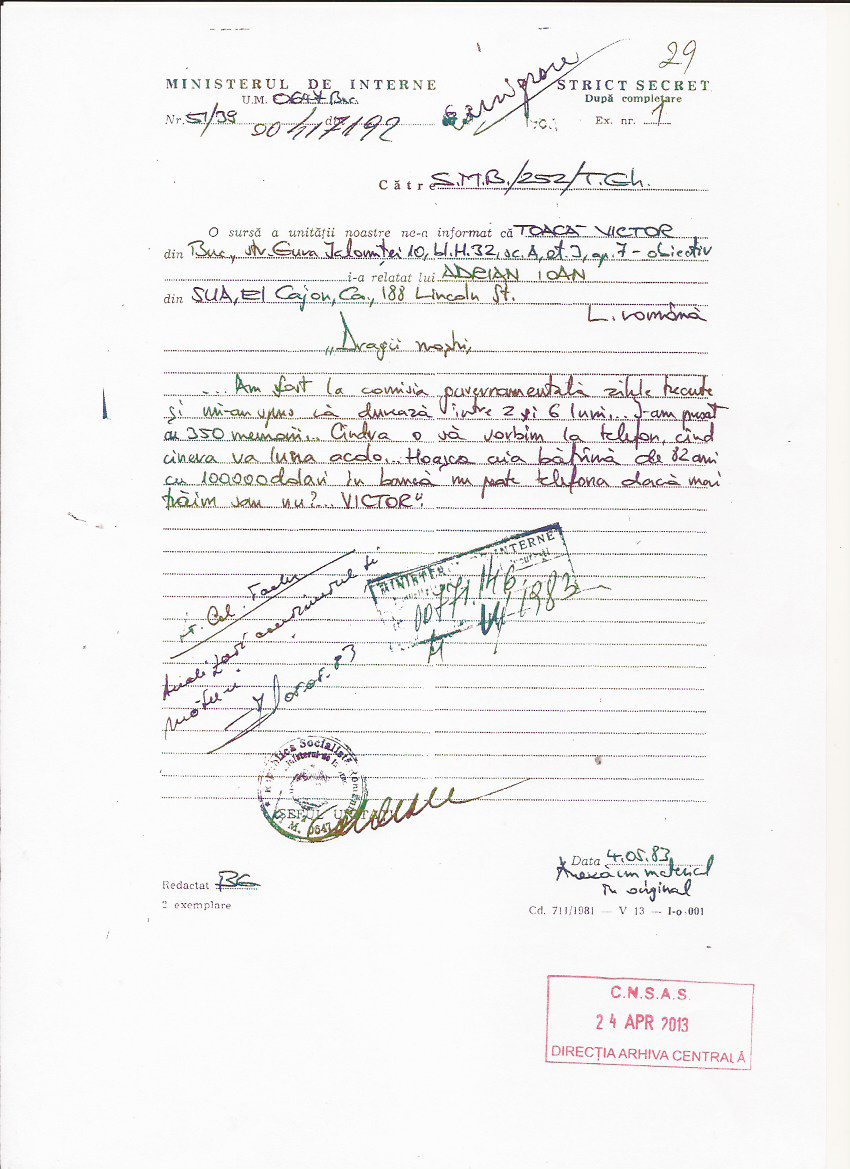 29
MINISTERUL DE INTERNE
STRICT SECRET
U.M. 0647 Buc.
După completare
Nr. 51/39 00417192
Ex. nr. 1
Către S.M.B./252/T.Gh.
O sursă a unității noastre ne-a informat că TOACĂ VICTOR
din Buc., str. Gura Ialomiței 10, bl. H.32, sc. A, et. I, ap. 7 - obiectiv
i-a relatat lui ADRIAN IOAN
din SUA, El Cajon, Ca., 188 Lincoln St.
L. română
„Dragii moșhi,
... Am fost la comisia guvernamentală zilele trecute
și mi-au spus că durează între 2 și 6 luni... I-am pisat
cu 350 memorii... Cîndva o să vorbim la telefon, cînd
cineva va suna acolo... Hoașca aia bătrînă de 82 ani
cu 100000 dolari în bancă nu poate telefona dacă mai
trăim sau nu?... VICTOR".
MINISTERUL DE INTERNE
00771.146
1983
Lt. Col.
Analizați
și
05.83
Republica Socialistă România
Ministerul de Interne
ȘEFUL UNITĂȚII
U.M. 0647
Data 4.05.83
Anexăm material
în original
Redactat BG
2 exemplare
Cd. 711/1981 — V 13 — I-o-001
C.N.S.A.S.
24 APR 2013
DIRECȚIA ARHIVA CENTRALĂ